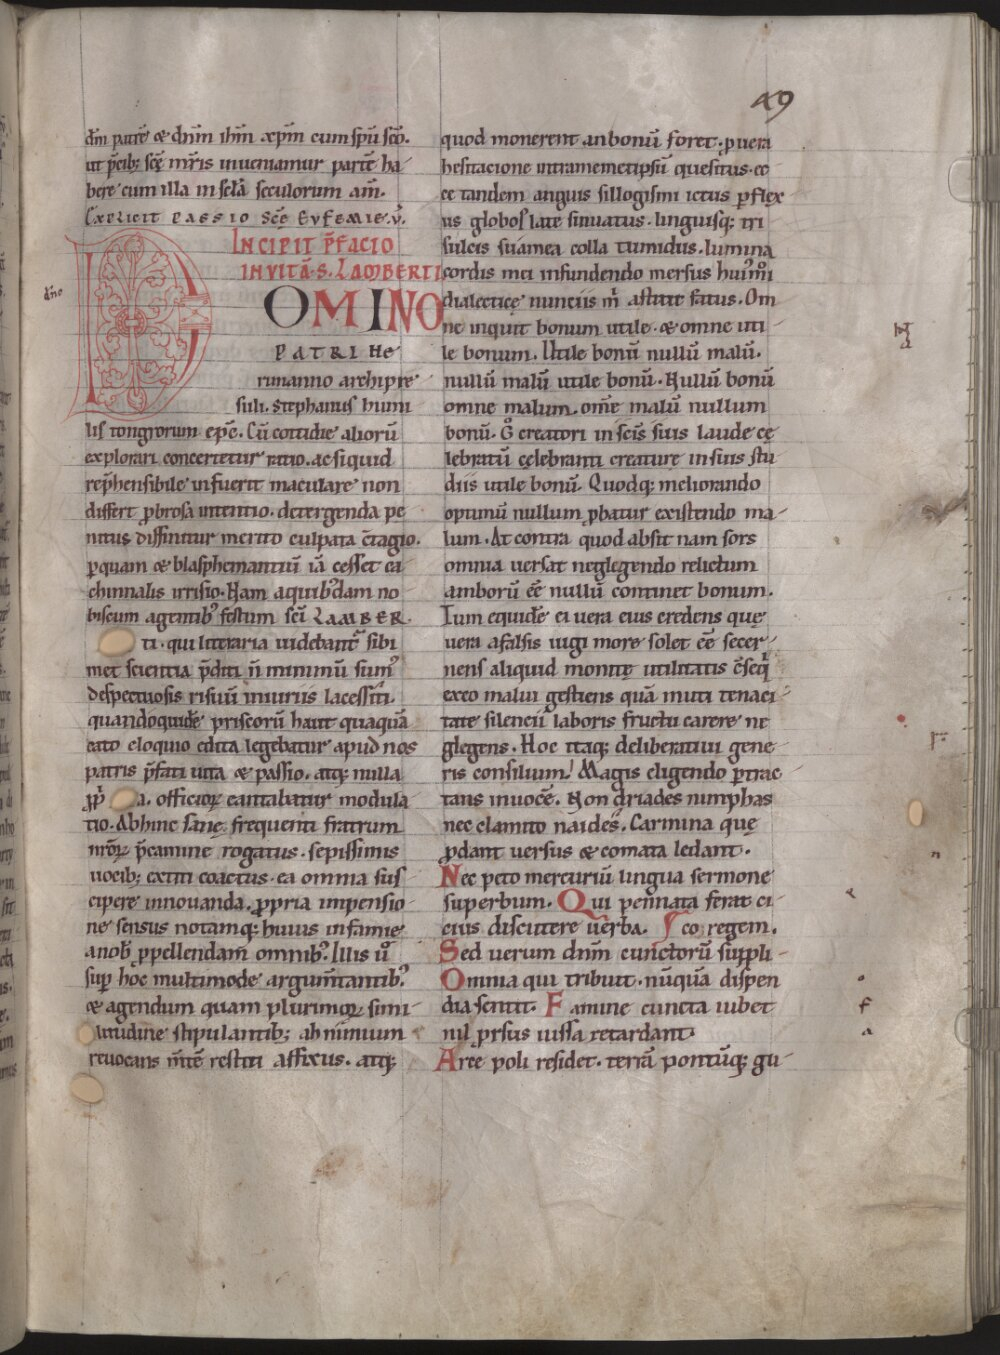 49
dm̄ patrē & dnm̄ ihm̄ xpm̄ cum spū scō.
ut p̄cib; scę mr̄is inueniamur partē ha-
bere cum illa in scl̄a seculorum am̄.
Explicit passio scē Eufemie. v̄.
Incipit p̄facio
in vitā. s. Lamberti
dn̄o
DOMINO
PATRI He-
rimanno archipre-
suli. Stephanus humi-
lis tongrorum ep̄c. Cū cottidie aliorū
explorari concertetur ratio. ac siquid
rep̄hensibile infuerit maculare non
differt ꝓbrosa intentio. detergenda pe-
nitus diffinitur merito culpata c̄tagio.
p̱quam & blasphemantiū iā cesset ca-
chinnalis irrisio. Nam a quibꝰdam no-
biscum agentibꝰ festum scī LAMBER-
ti. qui literaria uidebant̄ sibi
met scientia p̄diti n̄ minimū sumꝰ
despectuosis risuū iniuriis lacessiti.
quandoquidē priscorū haut quaquā
cato eloquio edita legebatur apud nos
patris p̄fati uita & passio. atq; nulla
a. officioꝝ cantabatur modula-
tio. Abhinc sanę frequenti fratrum
nr̄oꝝ p̄camine rogatus. sepissimis
uocib; extiti coactus. ea omnia sus-
cipere innouanda. ꝓpria impensio-
ne sensus notamq; huius infamie
a nob̄ ꝓpellendam omnibꝰ. Illis ū
sup̱ hoc multimode argum̄tantibꝰ.
& agendum quam plurimoꝝ simi-
litudine stipulantib; ab nimium
reuocans m̄tē restiti affixus. atq;
quod monerent an bonū foret. ꝓ uera
hesitacione intra memetipsū quesitus. ec-
ce tandem anguis sillogismi ictus p̱flex-
us globos late sinuatus. linguisq; tri-
sulcis suamea colla tumidus. lumina
cordis mei infundendo mersus
dialecticę nunciis m̄ astitit fatus. Om-
ne inquit bonum utile. & omne uti-
le bonum. Utile bonū nullū malū.
nullū malū utile bonū. Nullū bonū
omne malum. om̄e malū nullum
bonū. G̊ creatori in scīs suis laude cę-
lebratū cęlebranti creature in suis stu-
diis utile bonū. Quodq; meliorando
optimū nullum ꝓbatur existendo ma-
lum. At contra quod absit nam sors
omnia uersat neglegendo relictum
amborū eē̄ nullū continet bonum.
Tum equidē ei uera eius credens quę
uera a falsis uigi more solet eē̄ secer-
nens aliquid monitę utilitatis
exeo malui gestiens quā muti tenaci-
tate silencii laboris fructu carere ne-
glegens. Hoc itaq; deliberatiui gene-
ris consilium! Magis eligendo p̱trac-
tans inuocē. Non driades nimphas
nec clamito naides. Carmina quę
ꝓdant uersus & comata ledant.
Nec peto mercuriū lingua sermone
superbum. Qui pennata ferat ci-
cius discutere uerba. Sco regem.
Sed uerum dnm̄ cunctorū suppli-
Omnia qui tribuit. nūquā dispen-
dia sentit. Famine cuncta iubet
nil prsus iussa retardant.
Arce poli residet. terrā pontūq; gu-